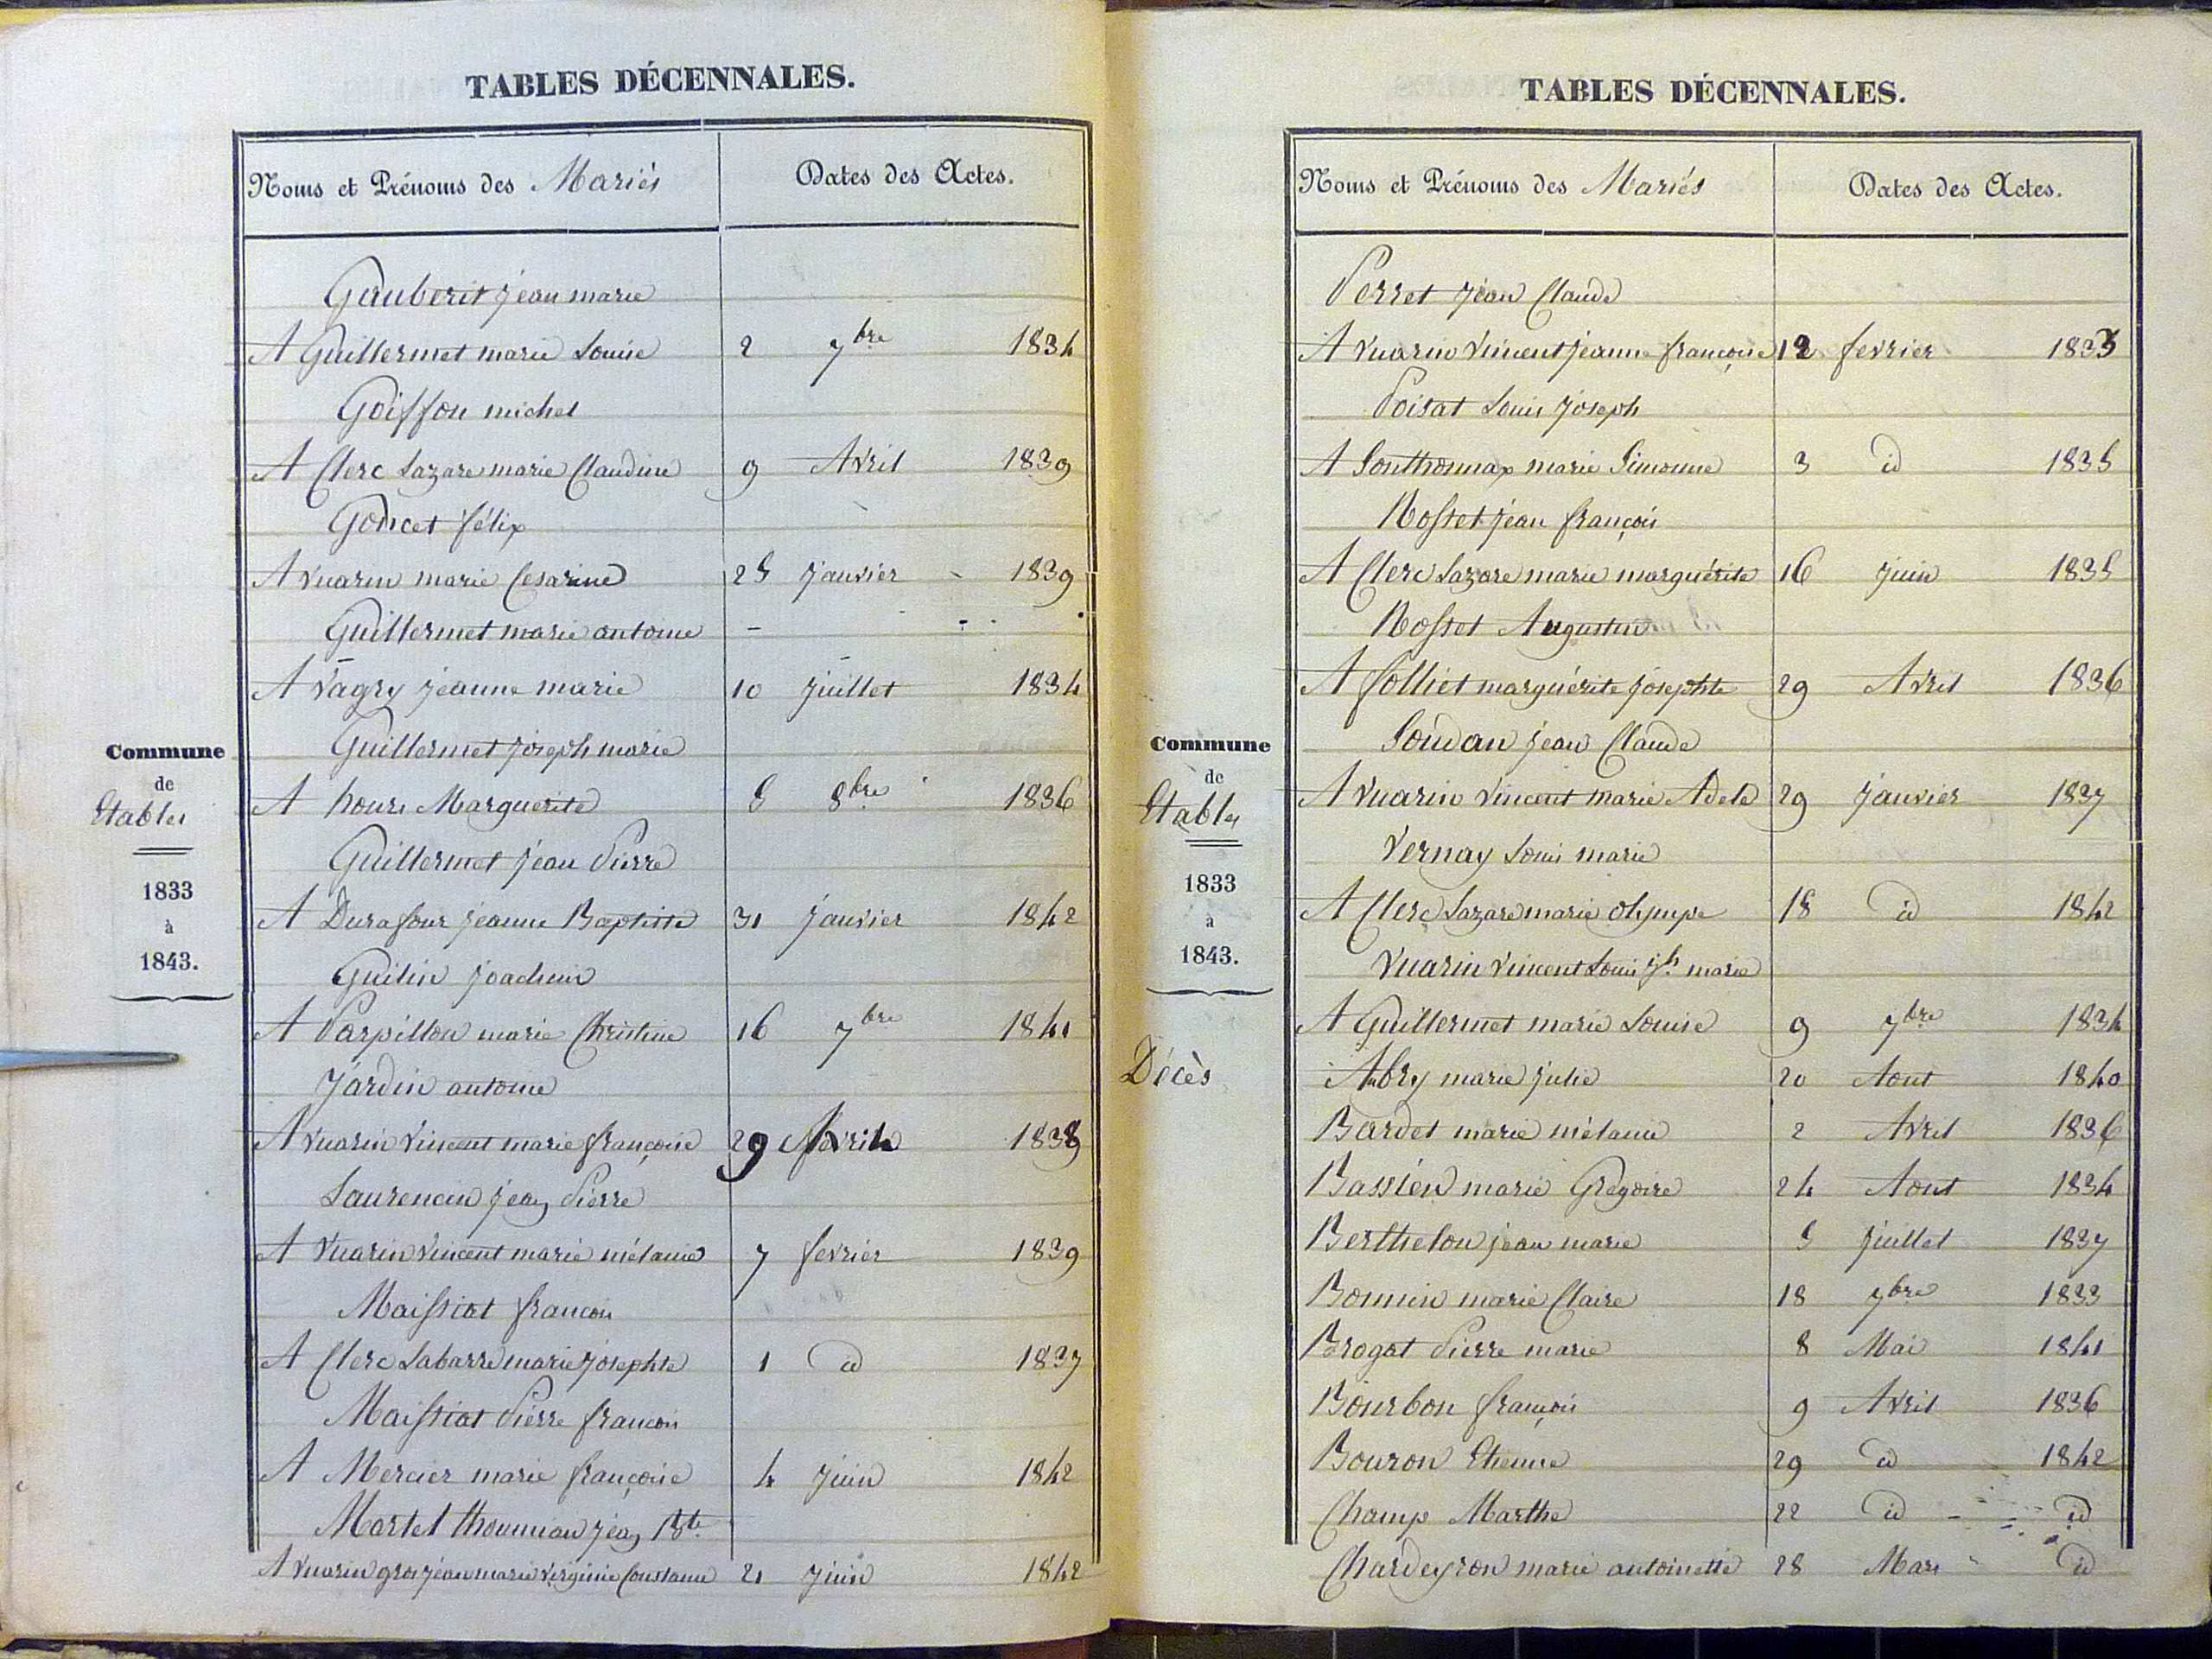 TABLES DÉCENNALES.
Noms et Prénoms des Mariés Dates des Actes.
Gauberit jean marie
A Guillermet marie Louise 2 7bre 1834
Goiffon michel
A Clerc Lazare marie Claudine 9 Avril 1839
Goncet félix
A vuarin marie Cesarine 25 janvier 1839
Guillermet marie antoine
A vagry jeanne marie 10 juillet 1834
Guillermet joseph marie
A hours Marguerite 5 8bre 1836
Guillermet jean Pierre
A Durafour jeanne Baptiste 31 janvier 1842
Guilin joachim
A Parpillon marie Christine 16 7bre 1841
Jardin antoine
A vuarin vincent marie françoise 29 Avril 1838
Laurencin jean Pierre
A Vuarin vincent marie mélanie 7 fevrier 1839
Maissiat francois
A Clerc Labarre marie josephte 1 id 1837
Maissiat Pierre francois
A Mercier marie françoise 4 juin 1842
Martel thoumian jean Bte
A vuarin gros jean marie virginie Constance 21 juin 1842
Commune
de
Etables
1833
à
1843.
TABLES DÉCENNALES.
Noms et Prénoms des Mariés Dates des Actes.
Perret jean Claude
A vuarin vincent jeanne françoise 12 fevrier 1833
Poisat Louis joseph
A Sonthonnax marie Simonne 3 id 1835
Rosset jean françois
A Clerc Lazare marie marguérite 16 juin 1835
Rosset Augustin
A folliet marguérite josephte 29 Avril 1836
Soudan jean Claude
A vuarin vincent marie Adele 29 janvier 1837
Vernay Louis marie
A Clerc Lazare marie olympe 18 id 1842
Vuarin vincent Louis jh marie
A Guillermet marie Louise 9 7bre 1834
Abry marie julie 20 Aout 1840
Bardet marie mélanie 2 Avril 1836
Bassien marie Grégoire 24 Aout 1834
Berthelon jean marie 5 juillet 1837
Bonnin marie Claire 18 7bre 1833
Brogat Pierre marie 8 Mai 1841
Bourbon françois 9 Avril 1836
Bouron Etienne 29 id 1842
Champ Marthe 22 id id
Chardeyron marie antoinette 28 Mars id
Commune
de
Etables
1833
à
1843.
Décès